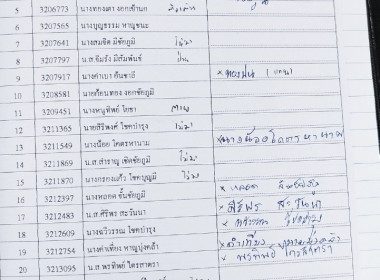 5 3206773 นางทองเสา งอกเข้านก
6 3207565 นางบุญธรรม หาญชนะ
7 3207641 นางสมจิต มีชัยภูมิ ไม่มา
8 3207797 น.ส.ขิมรัง มีสัมพันธ์ ป่วย
9 3207917 นางคำเบา อ้นชาลี
10 3208581 นายก้อนทอง งอกชัยภูมิ
11 3209451 นางหนูทิพย์ โยธา ตาย
12 3211365 นายสิริพงศ์ โชคบำรุง ไม่มา
13 3211549 นางน้อย โคตรหานาม นางน้อย โคตรหานาม
14 3211869 น.ส.สำราญ เชิดชัยภูมิ ไม่มา
15 3211870 นางกรองแก้ว ไชยบุญมี ไม่มา
16 3212397 นางหลอด ขึ้นชัยภูมิ
17 3212483 นางศิริพร สะวันนา ศิริพร สะวันนา
18 3212609 นางฉวีวรรณ โชคบำรุง
19 3212754 นางคำเที่ยง หาญบุ่งคล้า
20 3213095 น.ส.พรทิพย์ ไตรสาตรา พรทิพย์ ไตรสาตรา